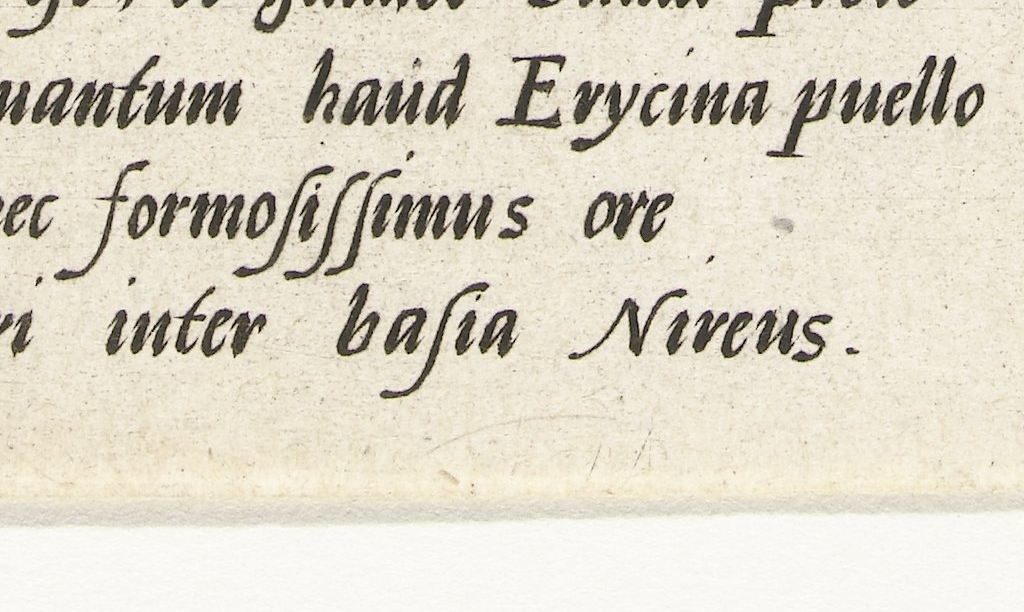 uantum haud Erycina puello
ec formosissimus ore
ri inter basia Nireus.